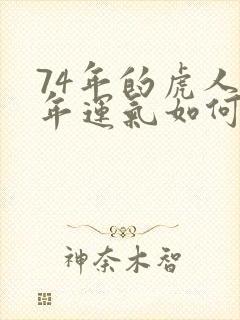 74年的虎人
年運氣如何
神奈木智